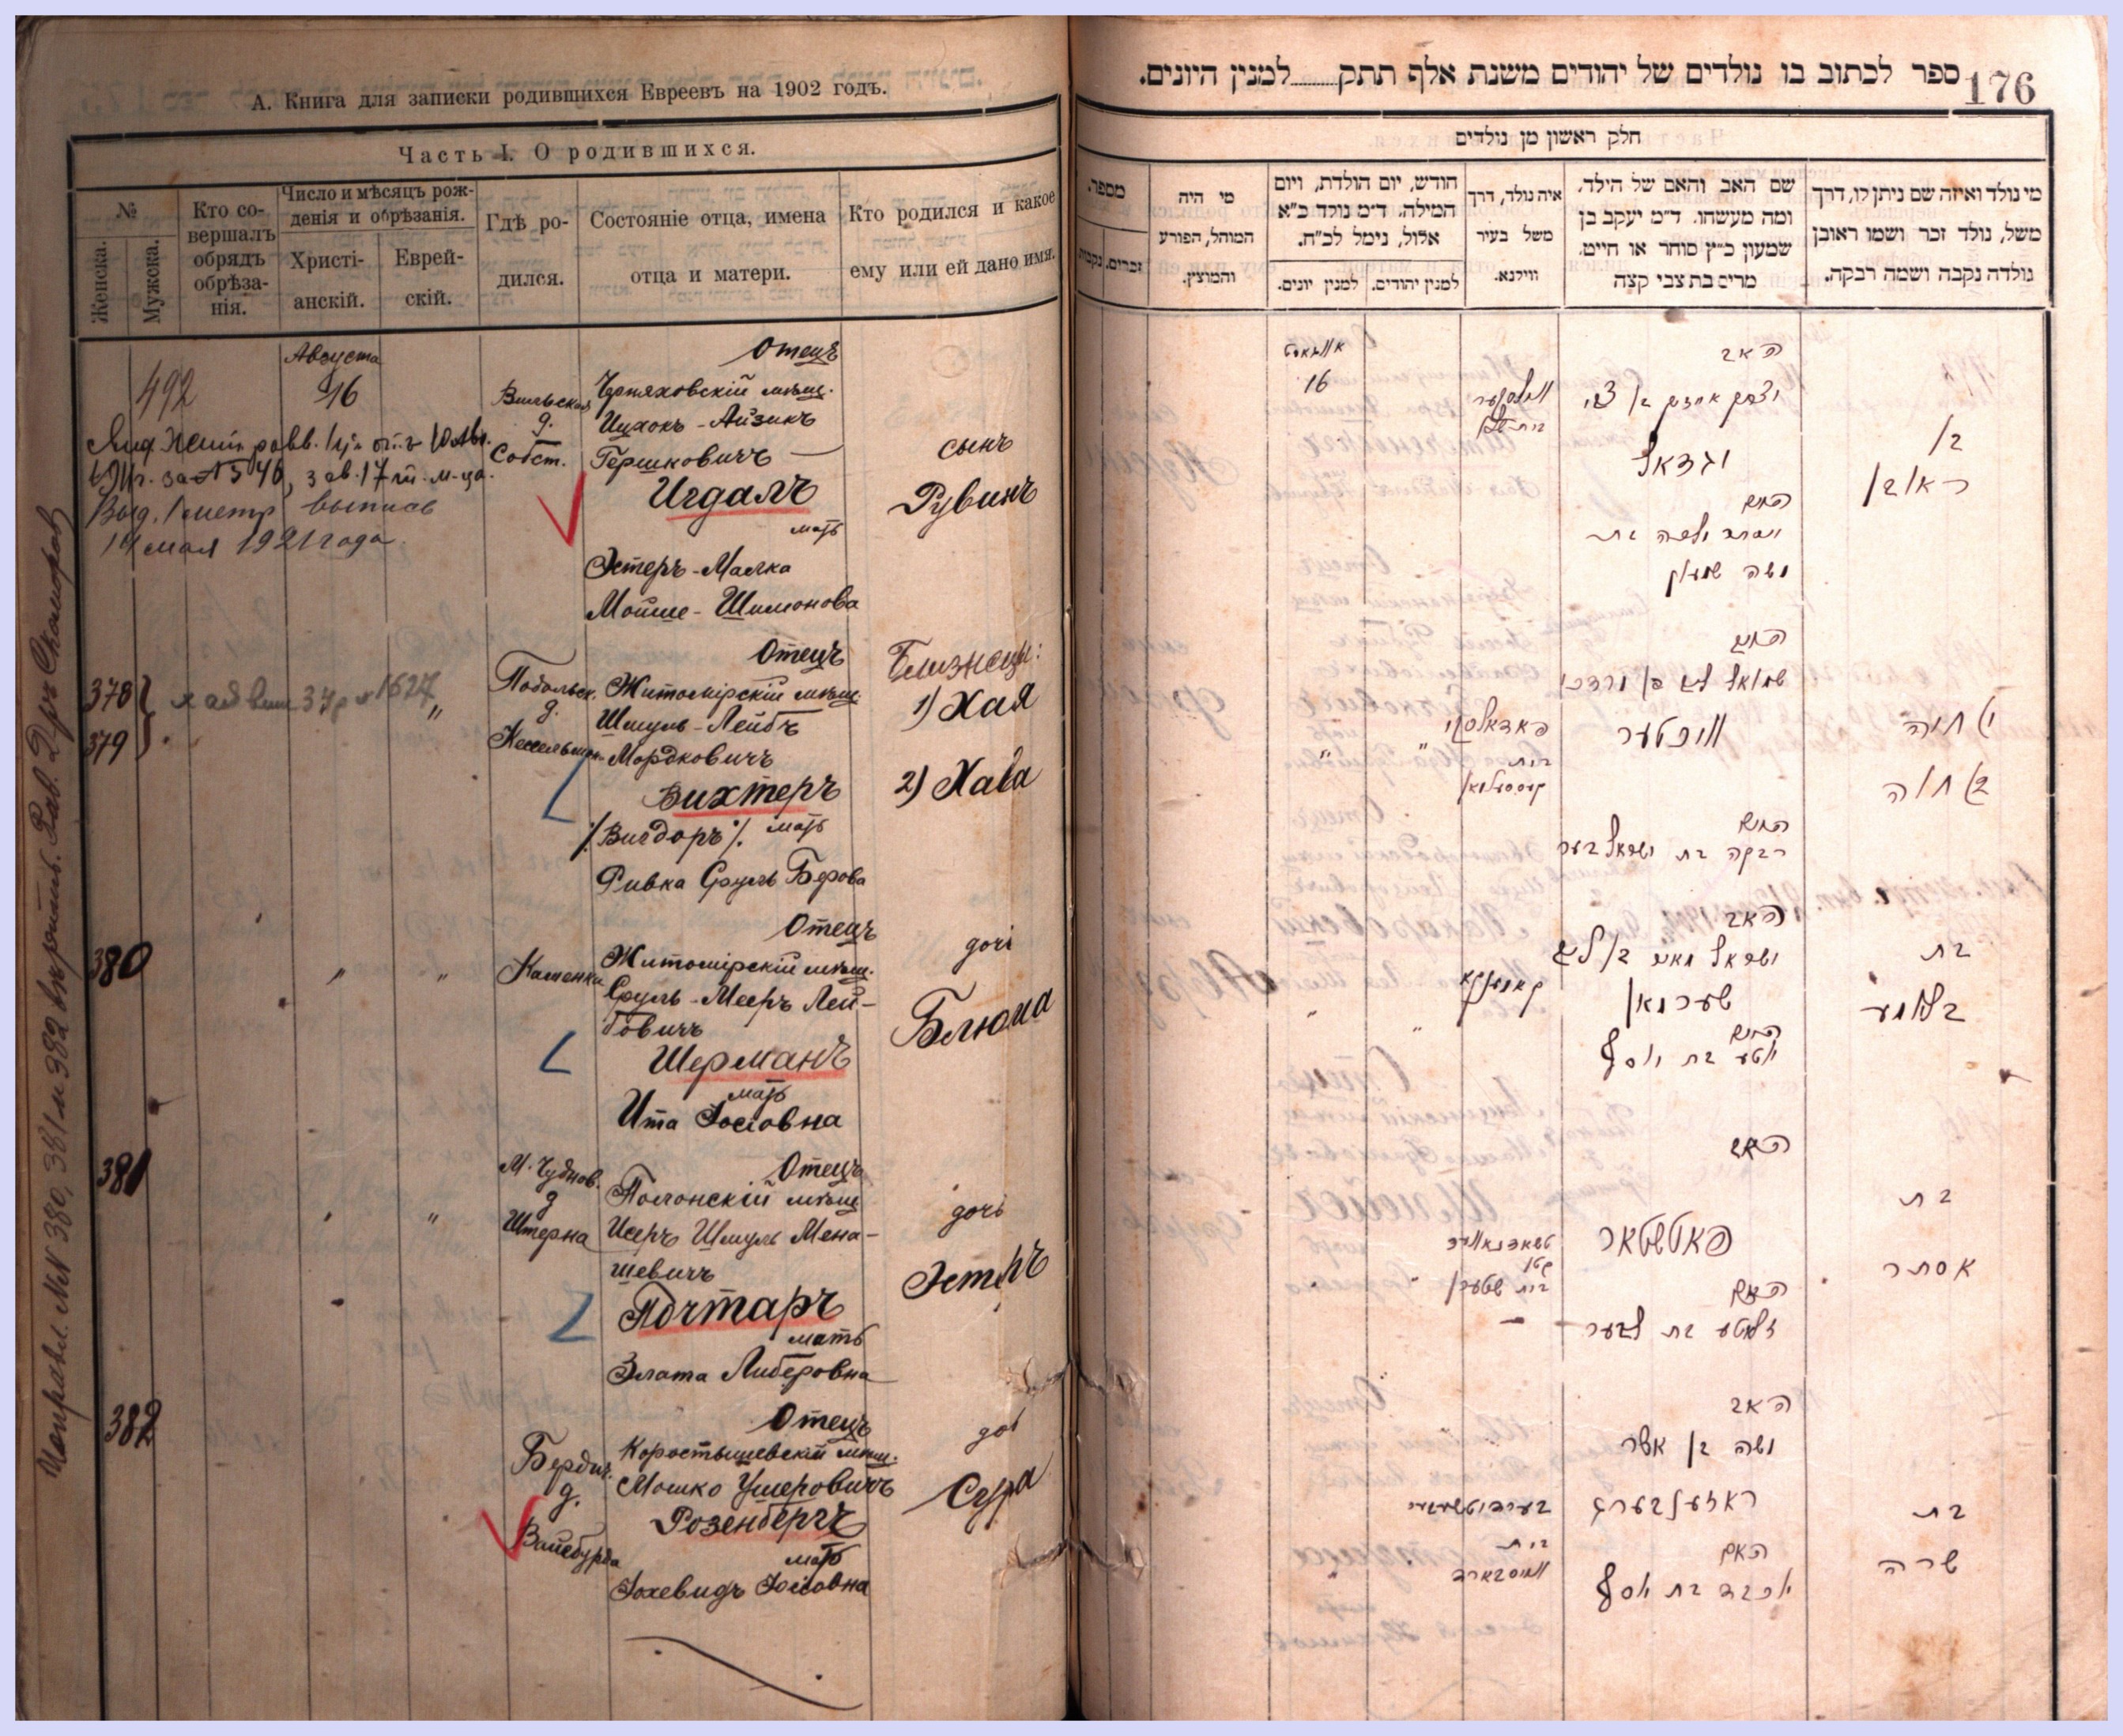 А. Книга для записки родившихся Евреевъ на 1902 годъ.
Часть I. О родившихся.
№
Женска.
Мужска.
Кто со-
вершалъ
обрядъ
обрѣза-
нія.
Число и мѣсяцъ рож-
денія и обрѣзанія.
Христі-
анскій.
Еврей-
скій.
Гдѣ ро-
дился.
Состояніе отца, имена
отца и матери.
Кто родился и какое
ему или ей дано имя.
492
Августа
16
Вильская
д.
Собст.
Отецъ
Черняховскій мѣщ.
Ицхокъ-Айзикъ
Гершковичъ
Игдалъ
мать
Эстеръ-Малка
Мойше-Шимонова
сынъ
Рувинъ
Выд. 1 метр выпись
14 мая 1921 года.
378
379
"
Подольск.
д.
Отецъ
Житомірскій мѣщ.
Шмуль-Лейбъ
Мордковичъ
Вихтеръ
/. Вигдоръ /. мать
Ривка Сруль Берова
Близнецы:
1) Хая
2) Хава
380
" "
Каменка
Отецъ
Житомірскій мѣщ.
Сруль-Мееръ Лей-
бовичъ
Шерманъ
мать
Ита Іосіовна
дочь
Блюма
381
" "
М. Чуднов.
д.
Штерна
Отецъ
Полонскій мѣщ.
Исеръ Шмуль Мена-
шевичъ
Почтаръ
мать
Злата Либеровна
дочь
Эстеръ
382
Бердич.
д.
Вайсбурда
Отецъ
Коростышевскій мѣщ.
Мошко Ушеровичъ
Розенбергъ
мать
Іохевидъ Іосіовна
Сура
176
ספר לכתוב בו נולדים של יהודים משנת אלף תתק......... למנין היונים.
חלק ראשון מן נולדים
מי נולד ואיזה שם ניתן לו, דרך
משל, נולד זכר ושמו ראובן
נולדה נקבה ושמה רבקה.
שם האב והאם של הילד,
ומה מעשהו. ד״מ יעקב בן
שמעון כ״ץ סוחר או חיים,
מרים בת צבי קצה
איה נולד, דרך
משל בעיר
ווילנא.
חודש, יום הולדת, ויום
המילה, ד״מ נולד כ״א
אלול, נימל לכ״ח.
למנין יהודים.
למנין יונים.
מי היה
המוהל, הפורע
והמוצץ.
מספר.
זכרים.
נקבות
אווגוסט
16
האב
יצחק אייזיק בן צבי
יגדאל
האם
אסתר מלכה בת
משה שמעון
בן
ראובן
שמואל ליב בן מרדכי
וויכטער
האם
רבקה בת ישראל בער
א) חיה
ב) חוה
האב
ישראל מאיר בן ליב
שערמאן
האם
יטע בת יוסף
בת
בלומע
האב
פאטשטאר
האם
זלאטע בת ליבער
בת
אסתר
האב
משה בן אשר
ראזענבערג
האם
יוכבד בת יוסף
בת
שרה